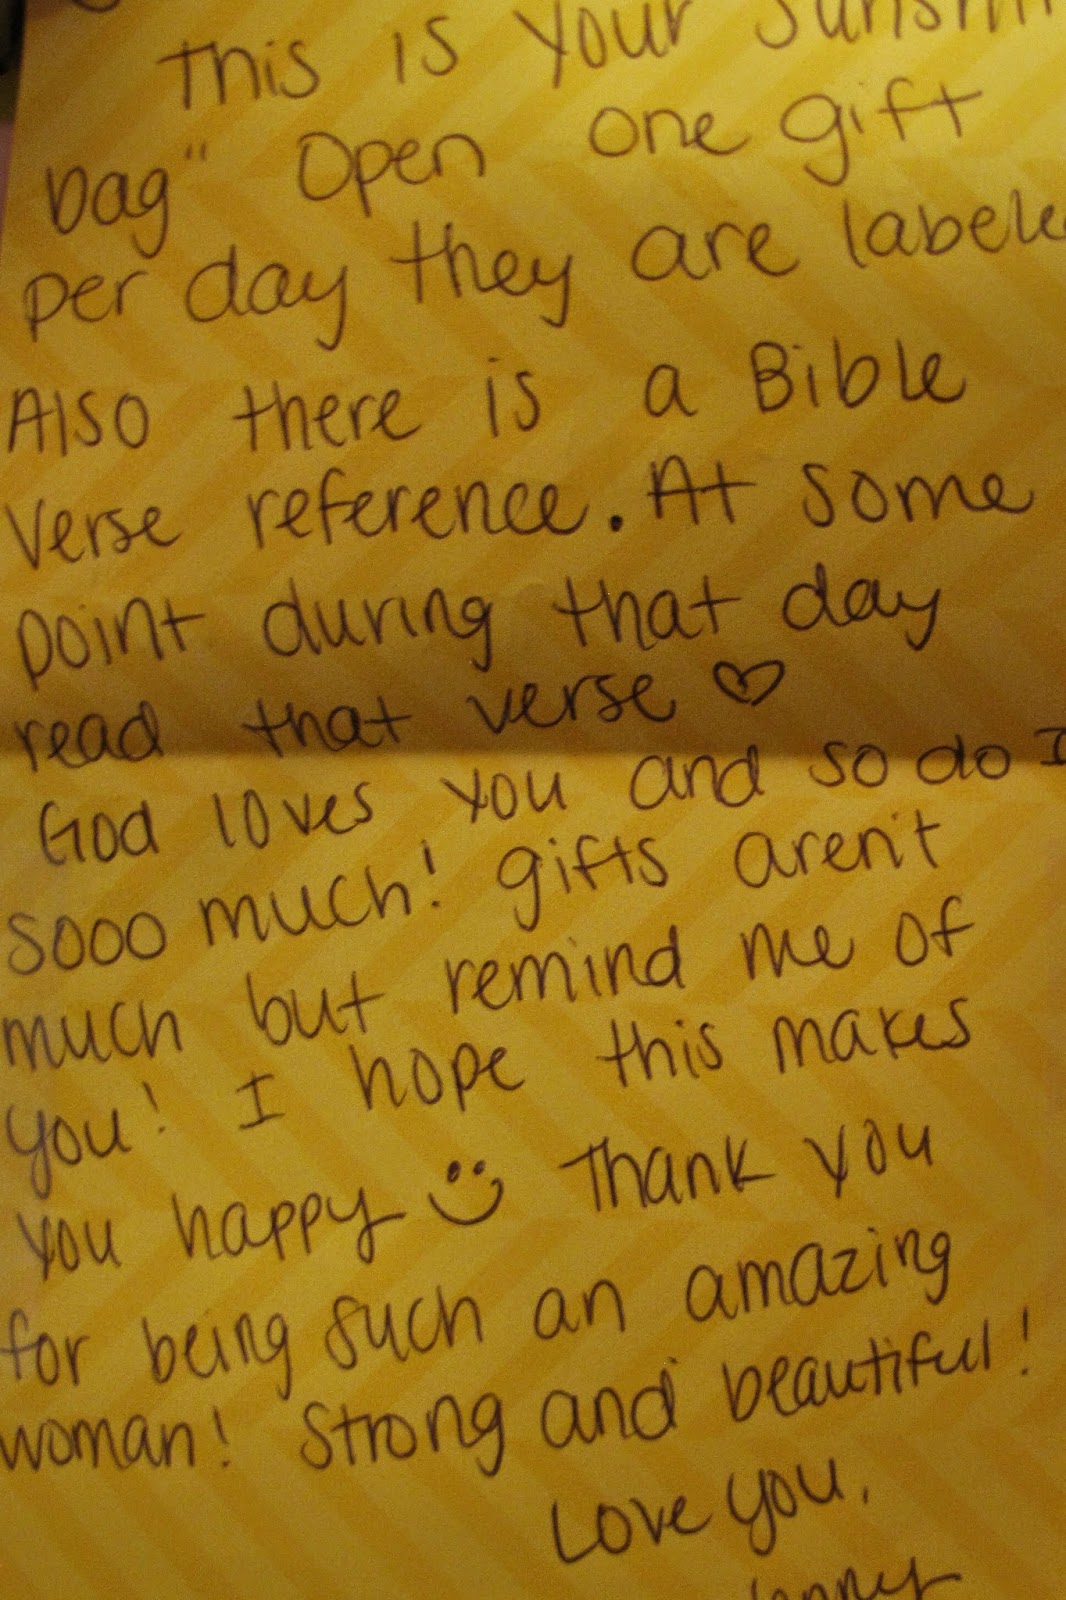 This is your
bag" Open one gift
per day they are labele
Also there is a Bible
Verse reference. At some
point during that day
read that verse ♡
God loves you and so do I
sooo much! gifts aren't
much but remind me of
you! I hope this makes
you happy ☺ Thank you
for being such an amazing
woman! Strong and beautiful!
Love you,